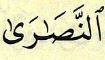 ٱلنَّصَٰرَىٰ